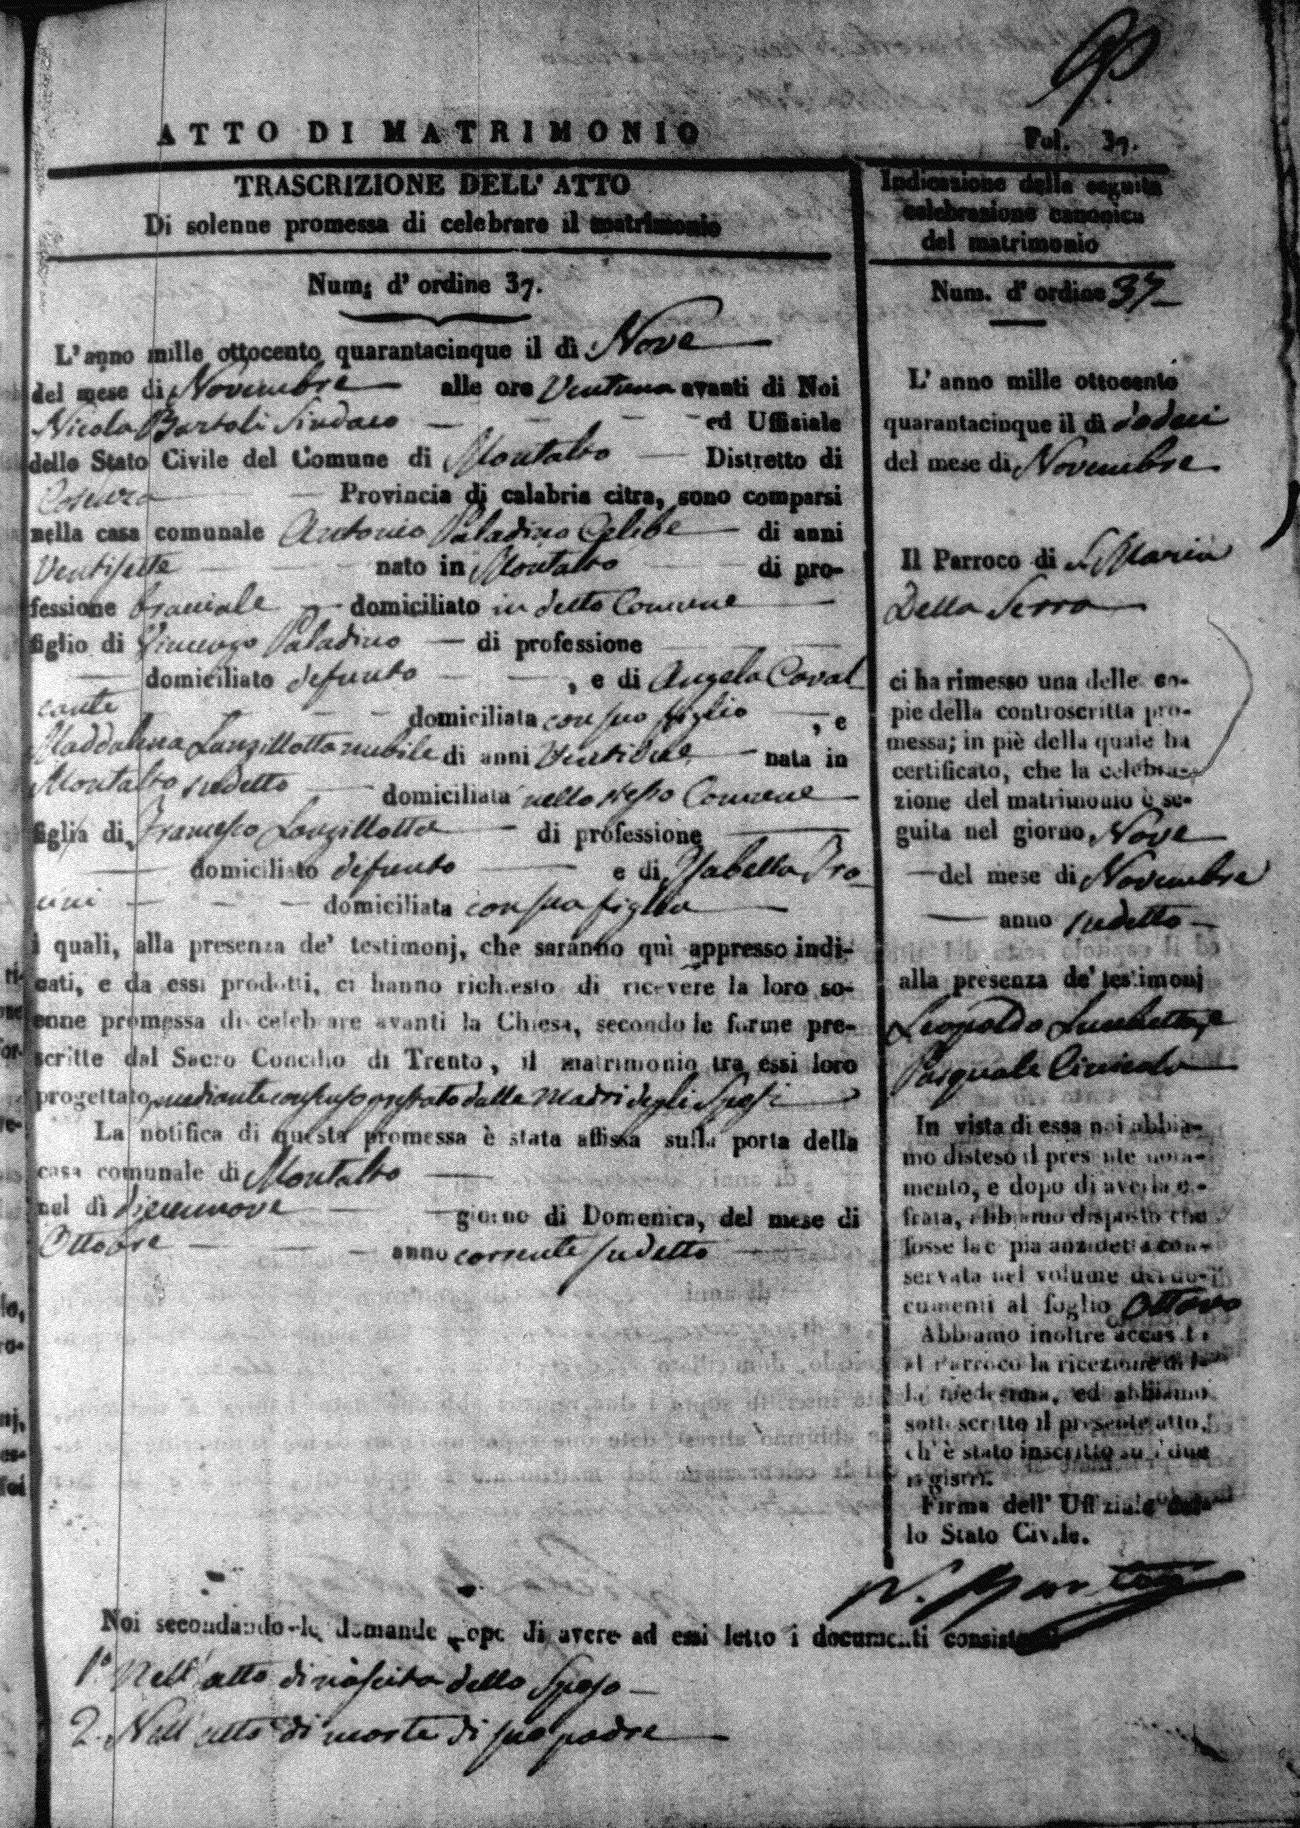 ATTO DI MATRIMONIO
Fol. 37.
TRASCRIZIONE DELL' ATTO
Di solenne promessa di celebrare il matrimonio
Num: d' ordine 37.
L' anno mille ottocento quarantacinque il dì Nove
del mese di Novembre alle ore Ventuna avanti di Noi
Nicola Bartoli Sindaco ed Uffiziale
dello Stato Civile del Comune di Montalto Distretto di
Cosenza Provincia di calabria citra, sono comparsi
nella casa comunale Antonio Paladino Celibe di anni
Ventisette nato in Montalto di pro-
fessione Bracciale domiciliato in detto Comune
figlio di Vincenzo Paladino di professione
domiciliato defunto , e di Angela Caval
cante domiciliata con suo figlio , e
Maddalena Lanzillotta nubile di anni Ventidue nata in
Montalto sudetto domiciliata nello stesso Comune
figlia di Francesco Lanzillotta di professione
domiciliato defunto e di Isabella
domiciliata con sua figlia
i quali, alla presenza de' testimonj, che saranno quì appresso indi-
cati, e da essi prodotti, ci hanno richiesto di ricevere la loro so-
enne promessa di celebrare avanti la Chiesa, secondo le forme pre-
scritte dal Sacro Concilio di Trento, il matrimonio tra essi loro
progettato, mediante consenso prestato dalle Madri degli Sposi
La notifica di questa promessa è stata affissa sulla porta della
casa comunale di Montalto
nel dì diecennove giorno di Domenica, del mese di
Ottobre anno corrente sudetto
Noi secondando le domande dopo di avere ad essi letto i documenti consistenti
1.° Nell' atto di nascita dello Sposo
2. Nell' atto di morte di suo padre
Indicazione della seguita
celebrazione canonica
del matrimonio
Num. d' ordine 37
L' anno mille ottocento
quarantacinque il dì dodeci
del mese di Novembre
Il Parroco di S. Maria
Della Serra
ci ha rimesso una delle co-
pie della controscritta pro-
messa; in piè della quale ha
certificato, che la celebra-
zione del matrimonio è se-
guita nel giorno Nove
del mese di Novembre
anno sudetto
alla presenza de' testimonj
Leopoldo Lucchetta, e
Pasquale
In vista di essa noi abbia-
mo disteso il presente nota-
mento, e dopo di averla ci-
frata, abbiamo disposto che
fosse la copia anzidetta con-
servata nel volume dei do-
cumenti al foglio Ottavo
Abbiamo inoltre accusato
al Parroco la ricezione del-
la medesima, ed abbiamo
sottoscritto il presente atto,
ch' è stato inscritto su i due
registri.
Firma dell' Uffiziale del-
lo Stato Civile.
N. Bartoli